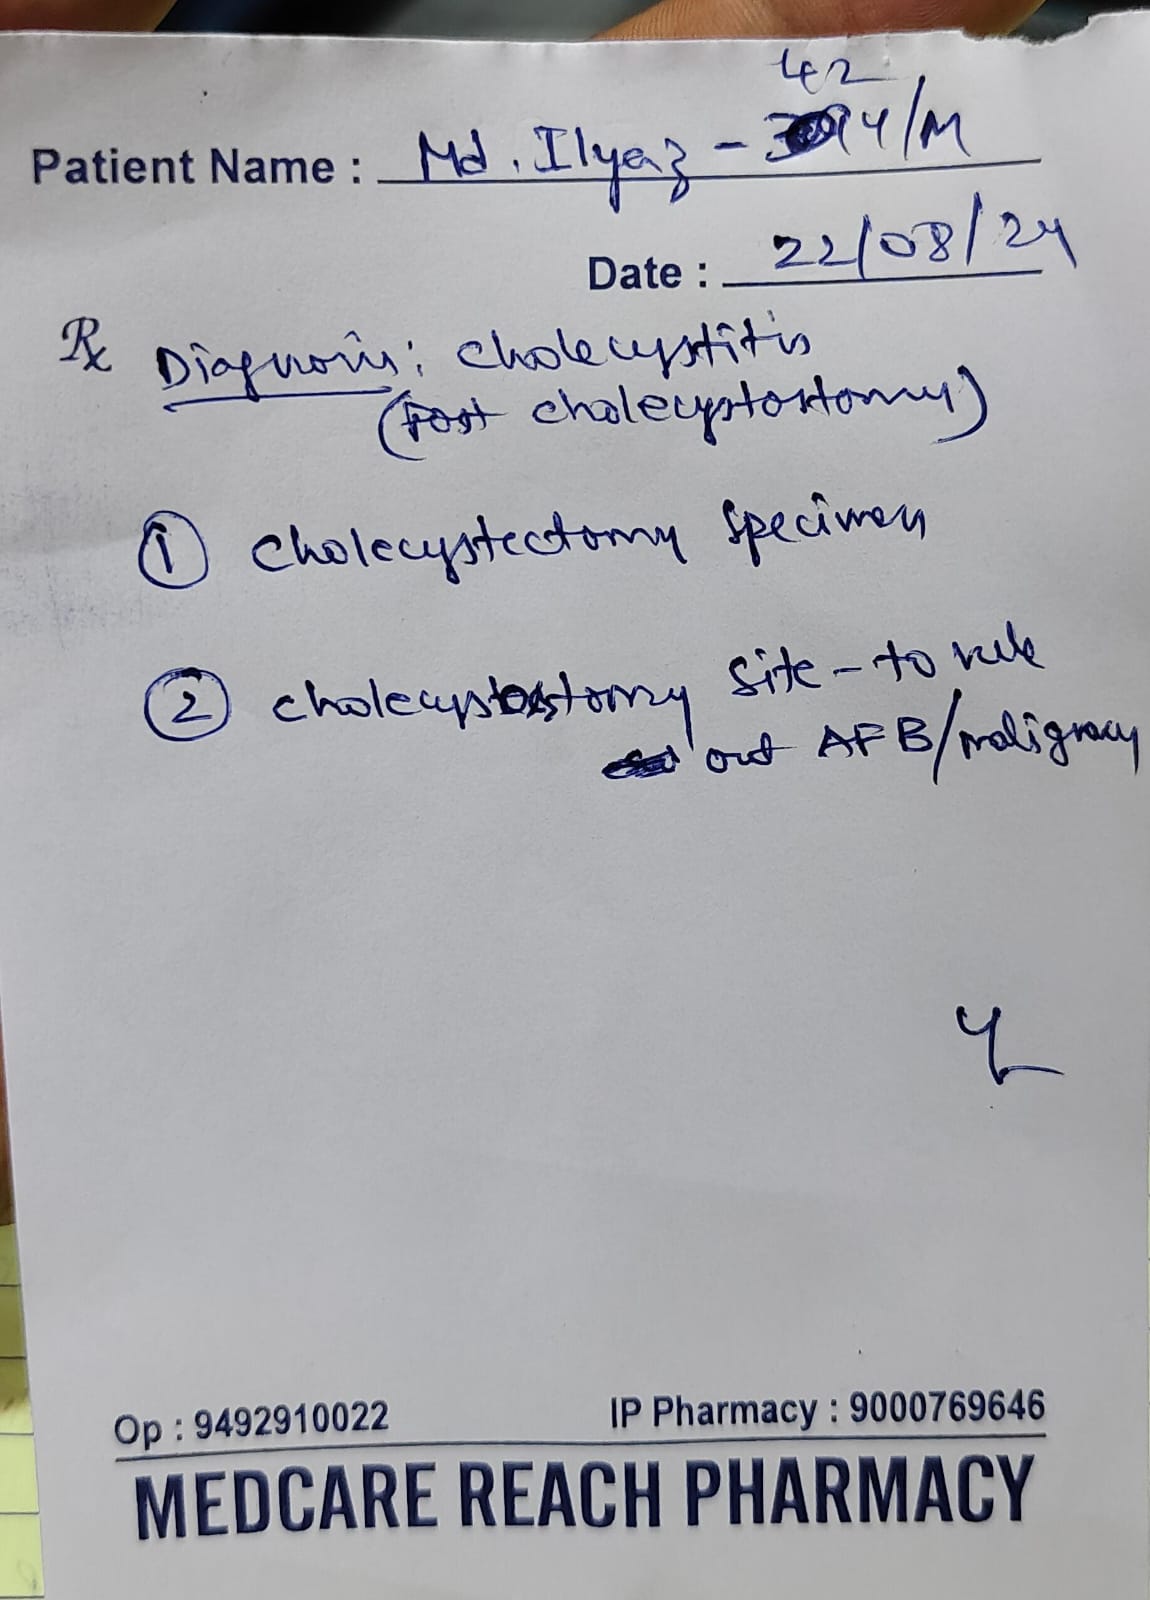 42
Patient Name : Md. Ilyaz - y/M
Date : 22/08/24
Rx Diagnosis: Cholecystitis
(Post cholecystostomy)
① Cholecystectomy Specimen
② Cholecystostomy Site - to rule
out AFB/malignancy
Op : 9492910022 IP Pharmacy : 9000769646
MEDCARE REACH PHARMACY